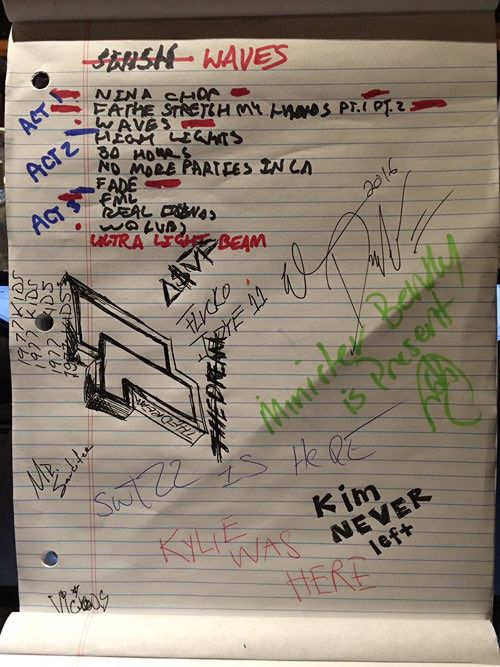 WAVES
ACT 1
NINA CHOP
FATHE STRETCH MY HANDS PT.1 PT.2
WAVES
ACT 2
HIGH LIGHTS
30 HOURS
NO MORE PARTIES IN LA
FADE
ACT 3
FML
REAL FRIENDS
WOLVES
ULTRA LIGHT BEAM
2016
1977 KIDS
1977 KIDS
1977 KIDS
1977 KIDS
THEDREAM
THEDREAM
Minister Bently
is Present
SWIZZ IS HERE
Kim
NEVER
left
KYLIE
WAS
HERE